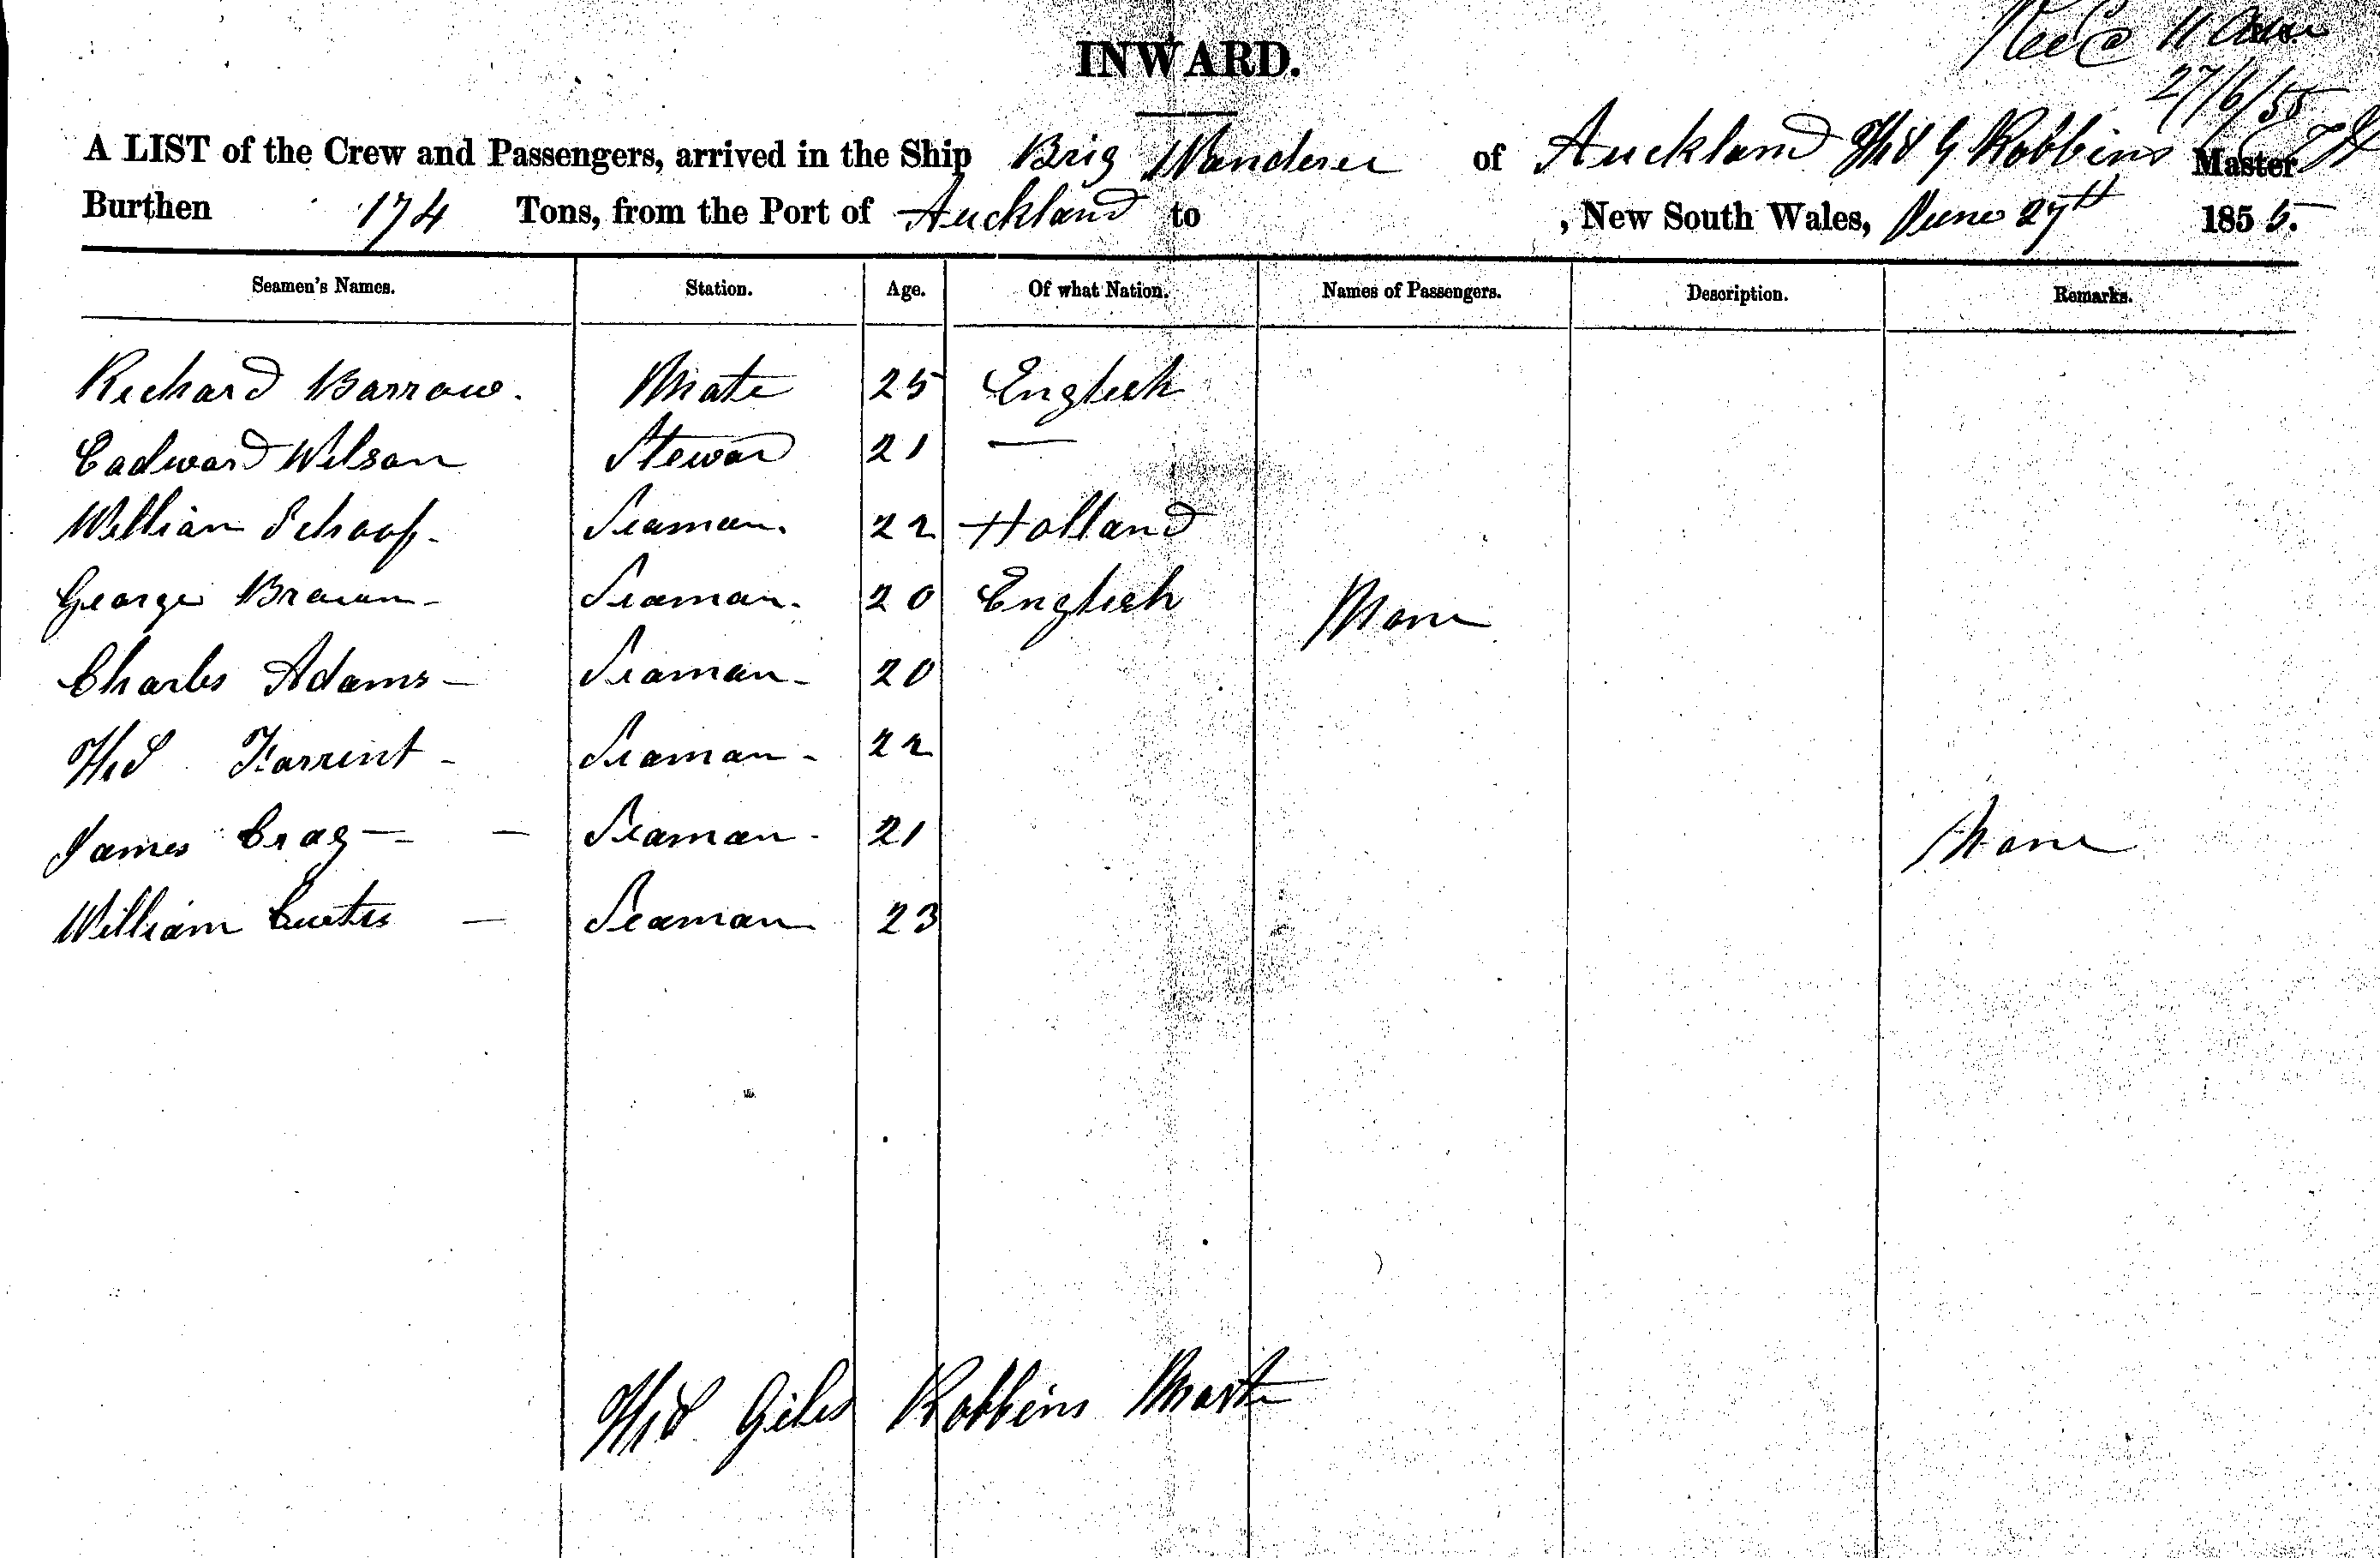 Recd 11 am
27/6/55
INWARD.
A LIST of the Crew and Passengers, arrived in the Ship Brig Wanderer of Auckland Thos G Robbins Master
Burthen 174 Tons, from the Port of Auckland to , New South Wales, June 27th 1855.
Seamen's Names. Station. Age. Of what Nation. Names of Passengers. Description. Remarks.
Richard Barrow. Mate 25 English
Eadward Wilson Steward 21 —
William Schoof - Seaman. 22 Holland
George Brown - Seaman. 20 English None
Charles Adams - Seaman - 20
Thos Farrint - Seaman - 22
James Crag - - Seaman - 21 None
William Curtis - Seaman 23
Thos Giles Robbins Master